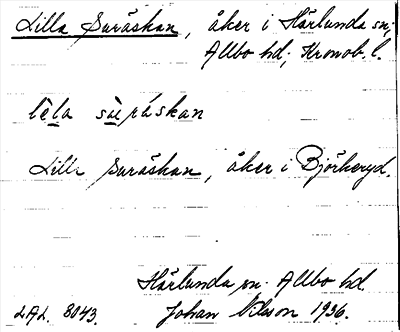 Lilla Suråskan, åker i Härlunda sn;
Allbo hd; Kronob. l.
lela suråskan
Lille Suråskan, åker i Björkeryd.
Härlunda sn. Allbo hd.
LAL. 8043. Johan Nilsson 1936.